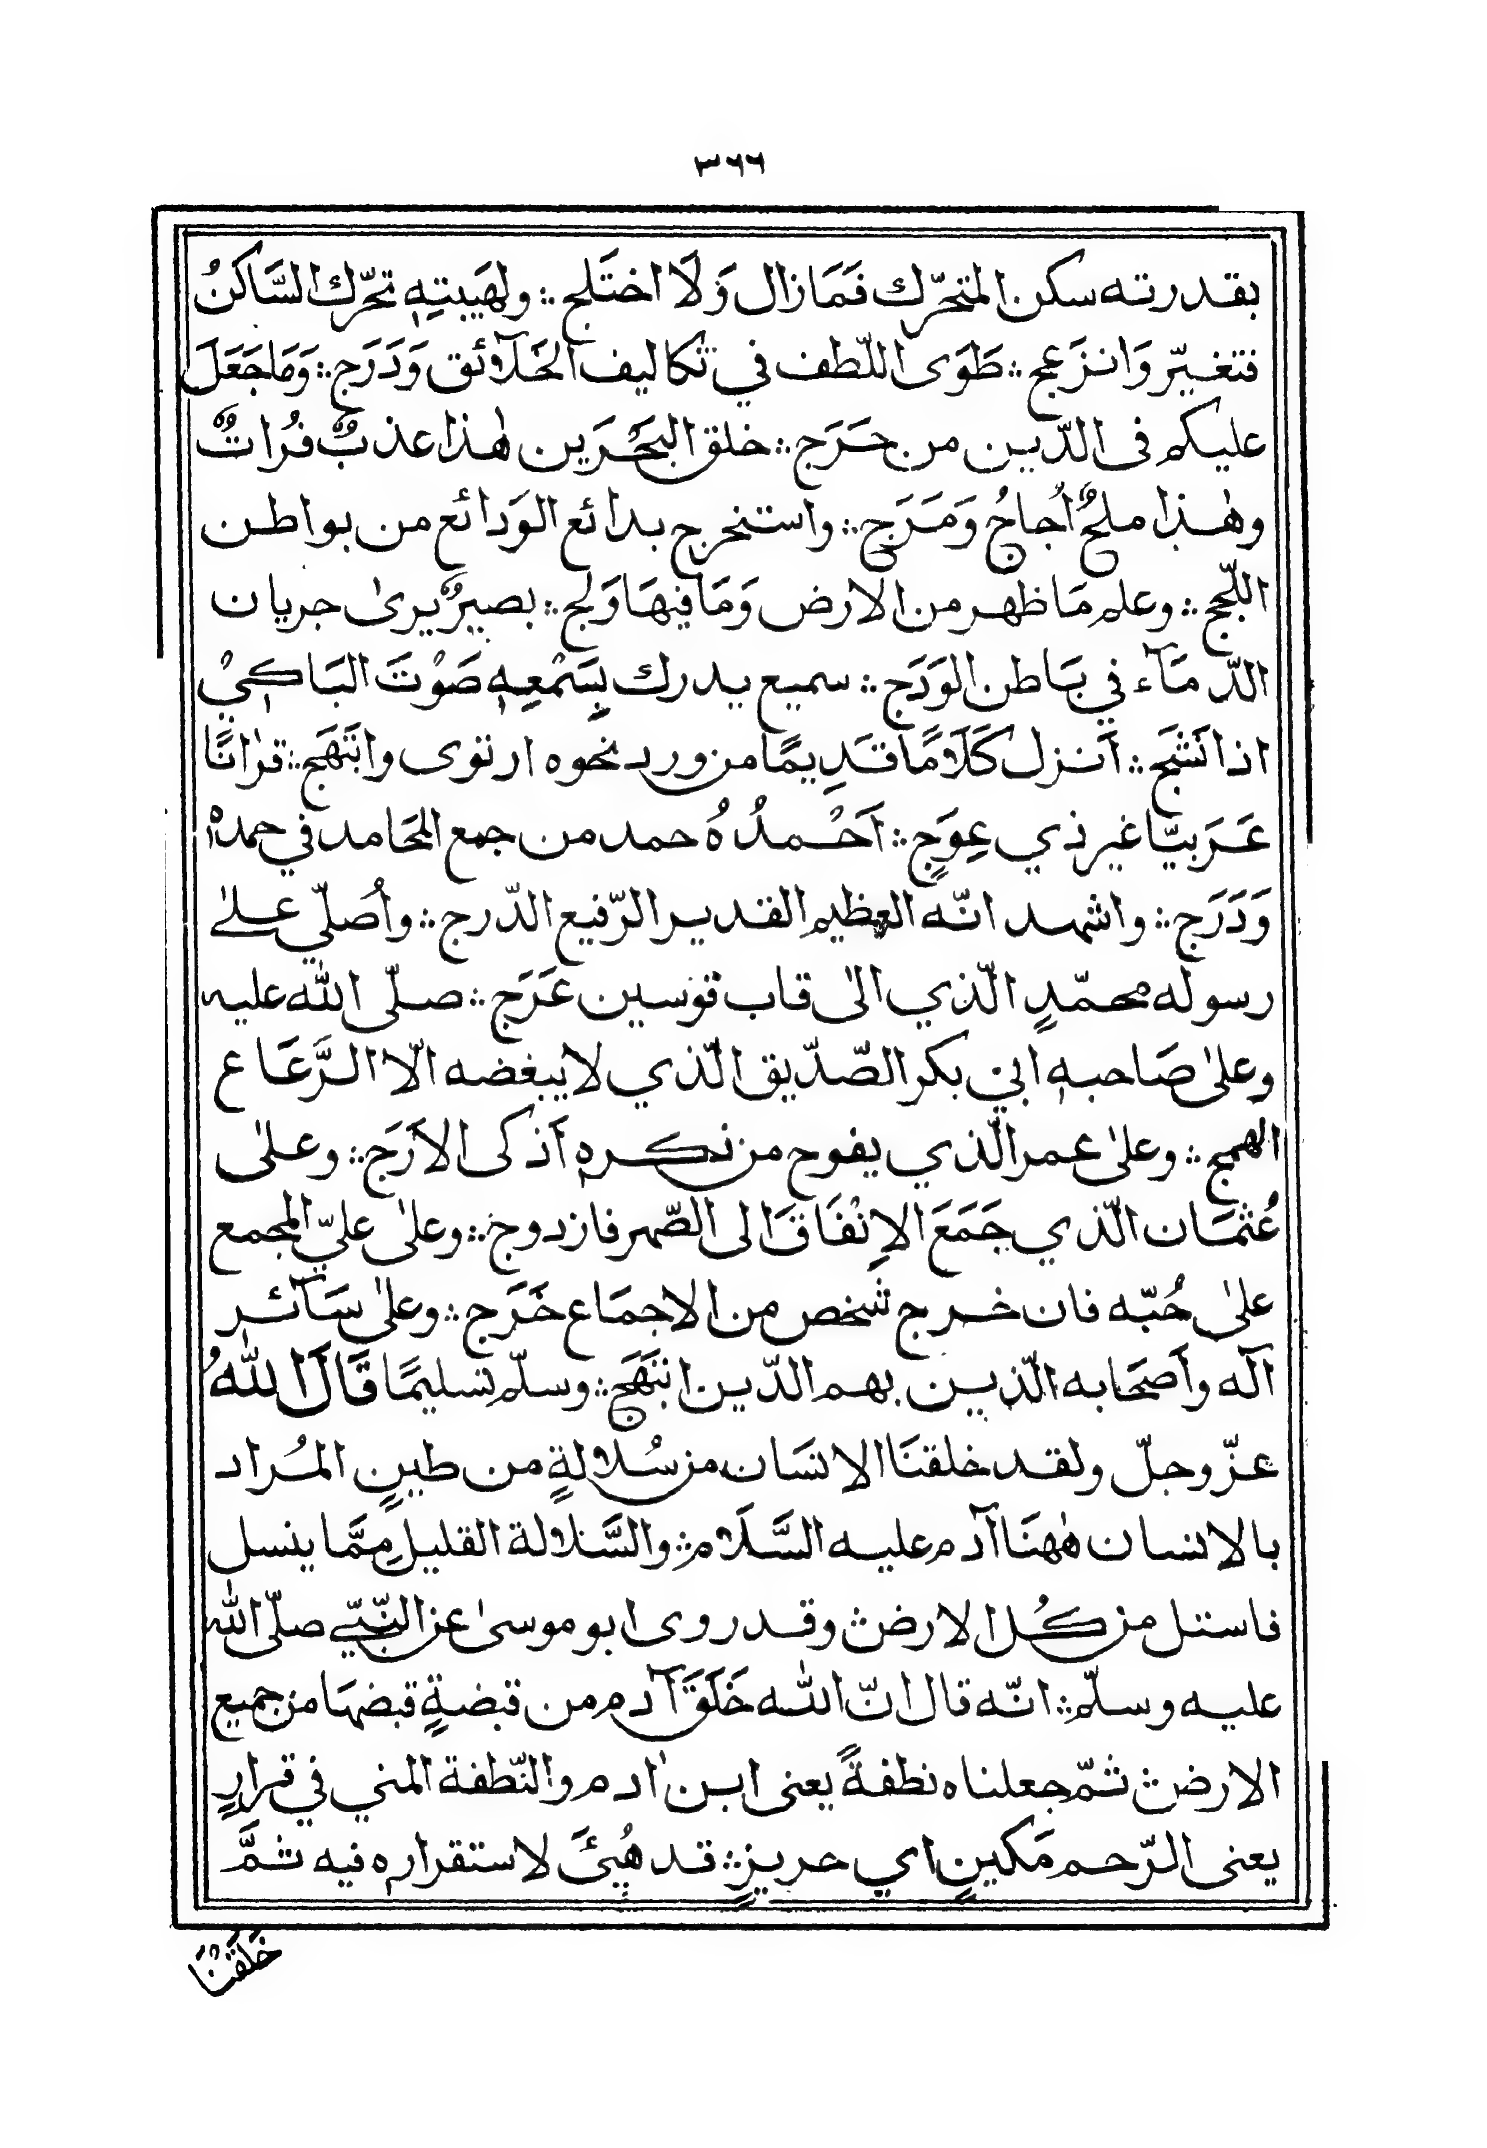 ٣٦٦
بقدرته سكن المتحرّك فَمَا زال وَلَا اختَلج ؞ ولهَيبتِهٖ تحرّك السَّاكنُ
فتغيّر وَانزَعج ؞ طَوَى اللّطف في تكاليف الخَلآئق وَدَرَج ؞ وَمَا جَعَلَ
عليكم فى الدّين من حَرَج ؞ خلق البَحْرَين هٰذا عذبٌ فُراتٌ
وهٰذا ملحٌ اُجاجٌ وَمَرَج ؞ واستخرج بدائع الوَدائع من بواطن
اللّجج ؞ وعلم مَا ظهر من الارض وَمَا فيهَا وَلج ؞ بصيرٌ يرىٰ جريان
الدّمَآء في بَاطن الوَدَج ؞ سميع يدرك بِسَمْعِهٖ صَوْتَ البَاكيْ
اذا نَشَج ؞ اَنزل كَلَامًا قَدِيمًا من ورد نحوه ارتوى وانتَهَج ؞ قرٰانًا
عَرَبيّا غير ذي عِوَجٍ ؞ اَحْمدُهُ حمد من جمع المحَامد في حمدهٖ
وَدَرَج ؞ واشهد انّه العظيم القدير الرّفيع الدّرج ؞ واُصلّي علىٰ
رسوله محمّدٍ الّذي الىٰ قاب قوسين عَرَج ؞ صلّى اللّٰه عليه
وعلىٰ صَاحبهٖ ابي بكر الصّدّيق الّذي لا يبغضه الّا الرَّعَاع
الهمج ؞ وعلىٰ عمر الّذي يفوح من ذكرهٖ اَذكى الاَرَج ؞ وعلىٰ
عُثمَان الّذي جَمَعَ الاِنْفَاقَ الى الصّهر فازدوج ؞ وعلىٰ عليّ المجمع
علىٰ حُبّه فان خرج شخص من الاجمَاع خَرَج ؞ وعلىٰ سَآئر
آله وأصحَابه الّذين بهم الدّين انتَهَج ؞ وسلّم تسليمًا قَالَ اللّٰهُ
عزّ وجلّ ولقد خلقنَا الانسَان من سُلالةٍ من طينٍ المُراد
بالانسان هٰهنَا آدم عليه السَّلَام ؞ والسَّلالة القليل مِمَّا ينسل
فاستل من كُل الارض وقد روى ابو موسىٰ عن النّبيّ صلّى اللّٰه
عليه وسلّم ؞ انّه قال انّ اللّٰه خَلَقَ آدم من قبضةٍ قبضهَا من جميع
الارض ثمّ جعلناه نطفةً يعنى ابن اٰدم والنّطفة المني في قرارٍ
يعنى الرّحم مَكينٍ اي حريزٍ ؞ قد هُيِّئَ لاستقراره فيه ثمَّ
خَلَقْنَا